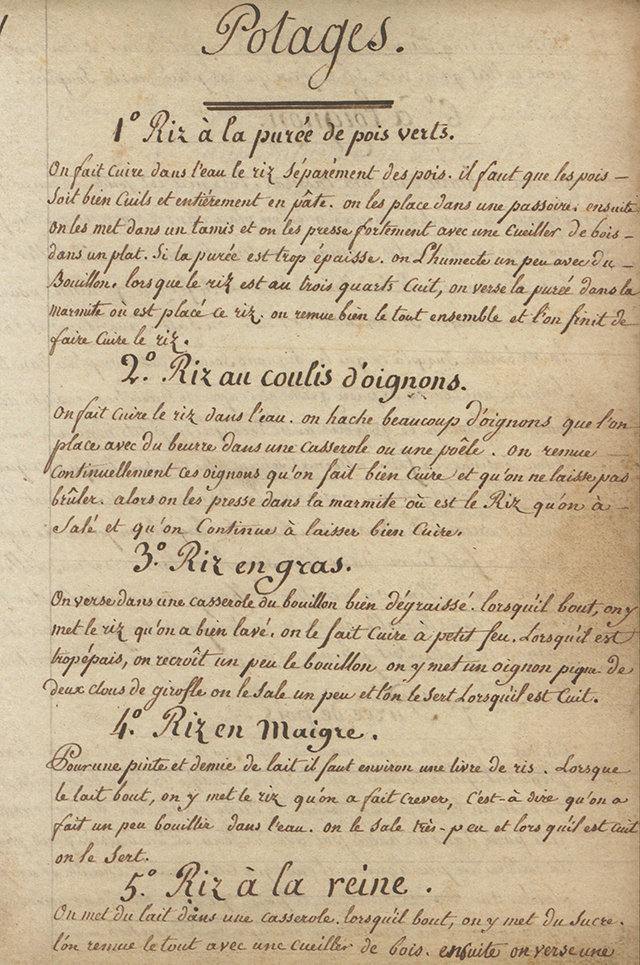 Potages.
1.° Riz à la purée de pois verts.
On fait cuire dans l'eau le riz séparément des pois. il faut que les pois –
soit bien Cuits et entiérement en pâte. on les place dans une passoire. ensuite
on les met dans un tamis et on les presse fortement avec une Cueiller de bois –
dans un plat. Si la purée est trop épaisse. on L'humecte un peu avec du –
Bouillon. lorsque le riz est au trois quarts Cuit, on verse la purée dans la
marmite où est placé ce riz. on remue bien le tout ensemble et l'on finit de
faire Cuire le riz.
2.° Riz au coulis d'oignons.
On fait cuire le riz dans l'eau. on hache beaucoup d'oignons que l'on
place avec du beurre dans une casserole ou une poêle. on remue –
Continuellment ces oignons qu'on fait bien Cuire et qu'on ne laisse pas
brûler. alors on les presse dans la marmite où est le Riz qu'on à –
Salé et qu'on Continue à laisser bien Cuire.
3.° Riz en gras.
On verse dans une casserole du bouillon bien dégraissé. lorsqu'il bout, on y
met le riz qu'on a bien lavé. on le fait Cuire à petit feu. Lorsqu'il est
trop épais, on recroît un peu le bouillon on y met un oignon piqué de
deux clous de girofle on le sale un peu et l'on le sert Lorsqu'il est Cuit.
4.° Riz en Maigre.
Pour une pinte et demie de lait il faut environ une livre de ris. Lorsque
le lait bout, on y met le riz qu'on a fait crever, C'est-à dire qu'on a
fait un peu bouillir dans l'eau. on le sale très-peu et lors qu'il est cuit
on le Sert.
5.° Riz à la reine.
On met du lait dans une casserole. lorsqu'il bout, on y met du Sucre.
l'on remue le tout avec une cueiller de bois. ensuite on verse une